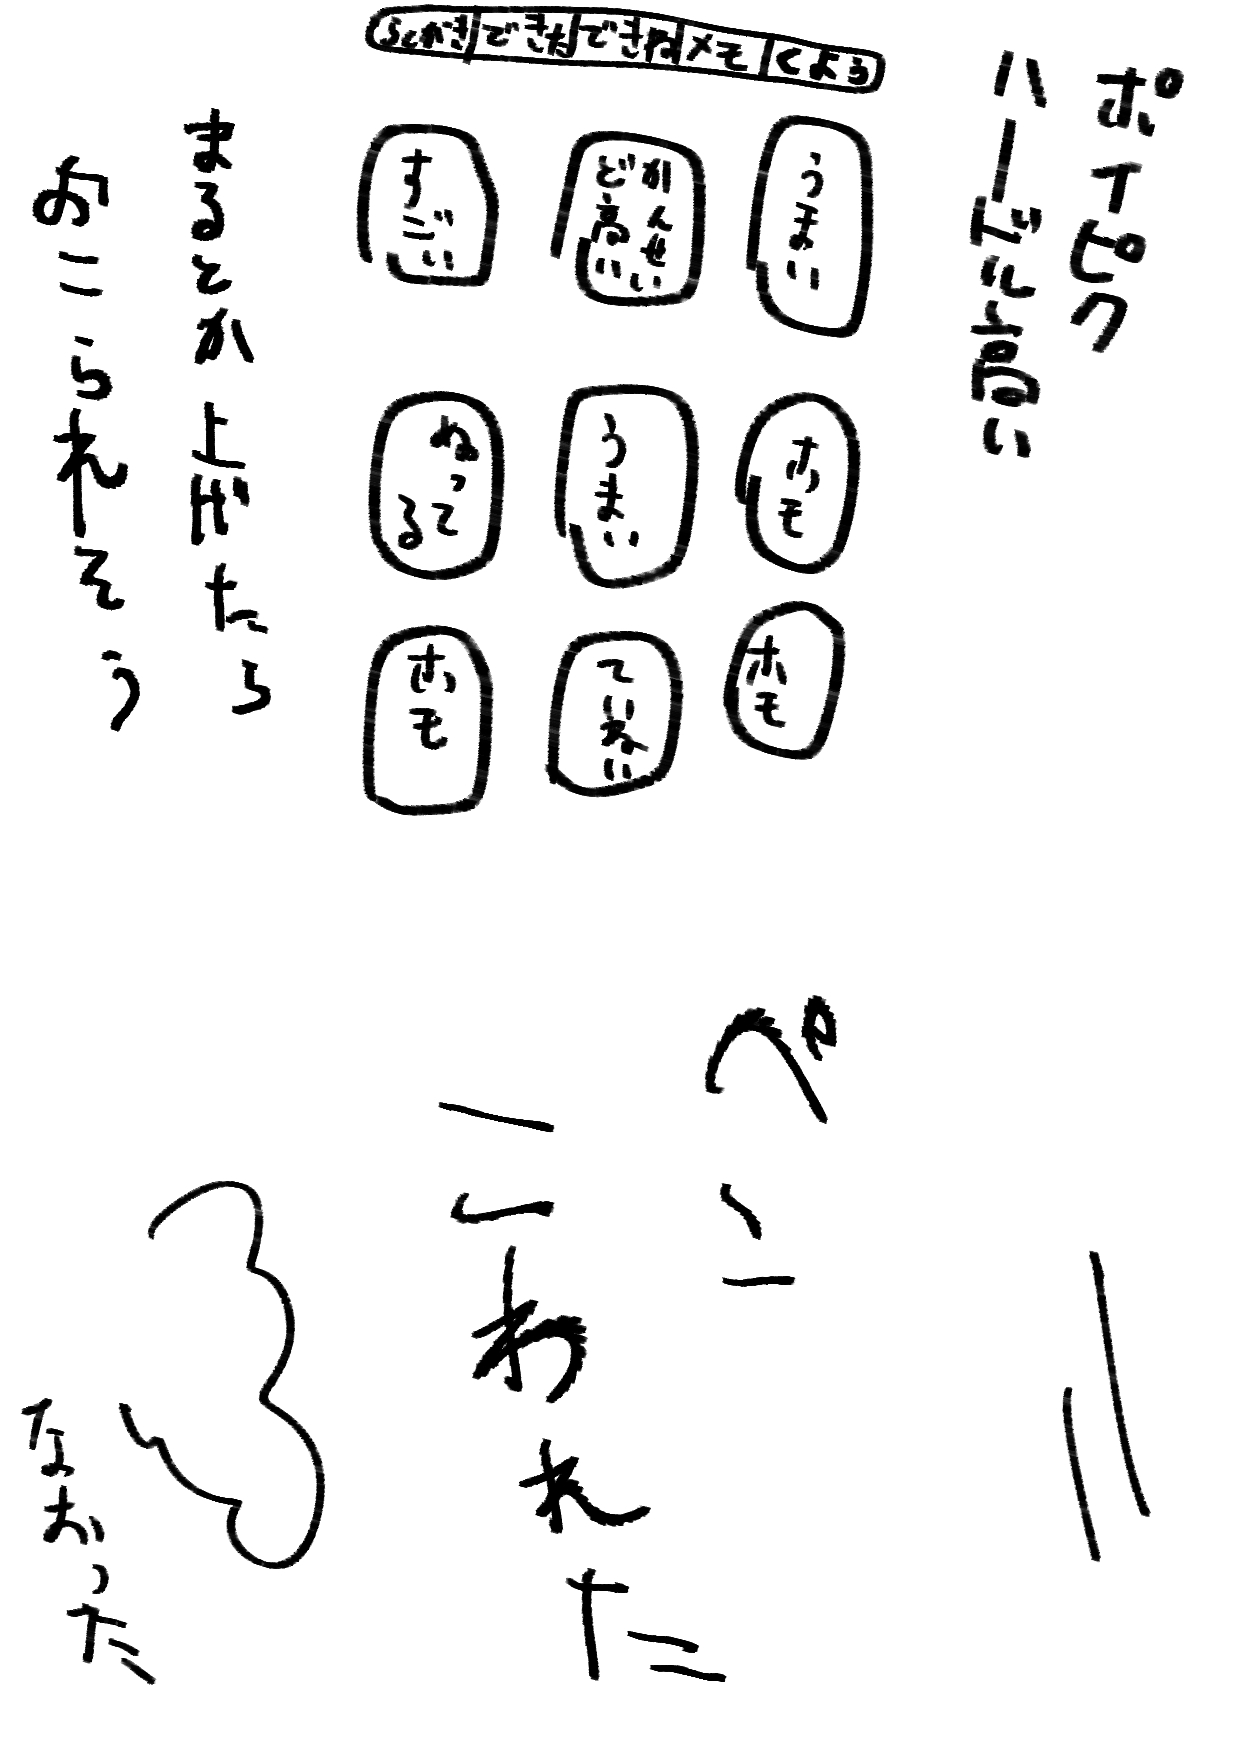 ポイピク
ハードル高い
らくがき できた できね メモ くよう
うまい
かんせい
ど高い
すごい
ホモ
うまい
ぬって
る
ホモ
ていねい
ホモ
まるとか上げたら
おこられそう
ペン
こわれた
なおった